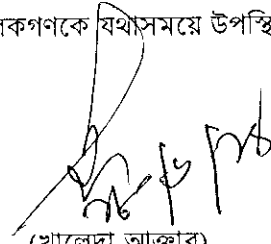 কগণকে যথাসময়ে উপস্থি
(খালেদা আক্তার)